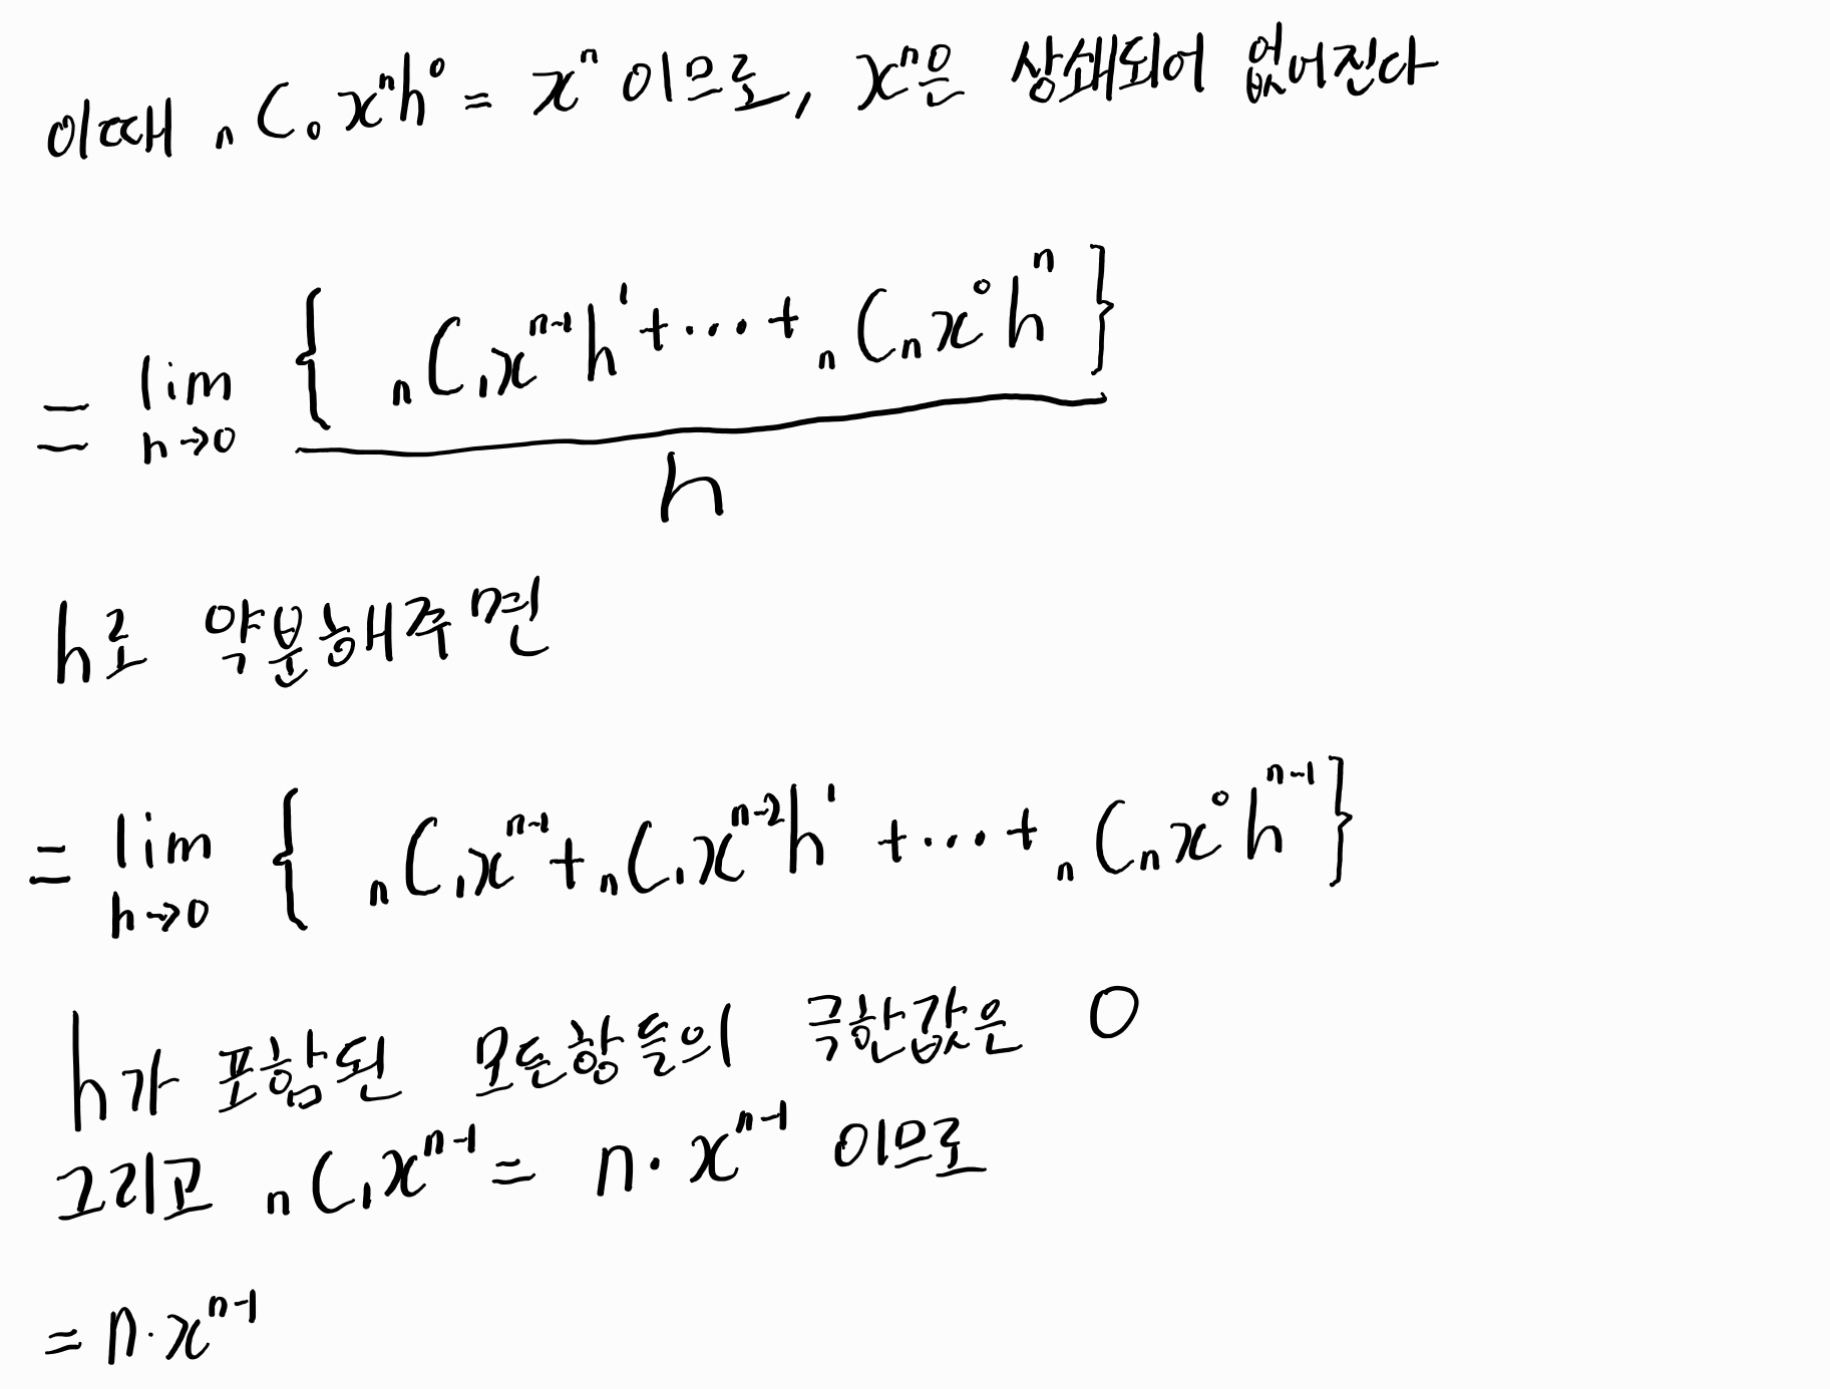 이때 ₙC₀xⁿh⁰ = xⁿ 이므로, xⁿ은 상쇄되어 없어진다
= lim { ₙC₁xⁿ⁻¹h¹ + ⋯ + ₙCₙx⁰hⁿ }
h→0 h
h로 약분해주면
= lim { ₙC₁xⁿ⁻¹ + ₙC₁xⁿ⁻²h¹ + ⋯ + ₙCₙx⁰hⁿ⁻¹ }
h→0
h가 포함된 모든항들의 극한값은 0
그리고 ₙC₁xⁿ⁻¹ = n·xⁿ⁻¹ 이므로
= n·xⁿ⁻¹